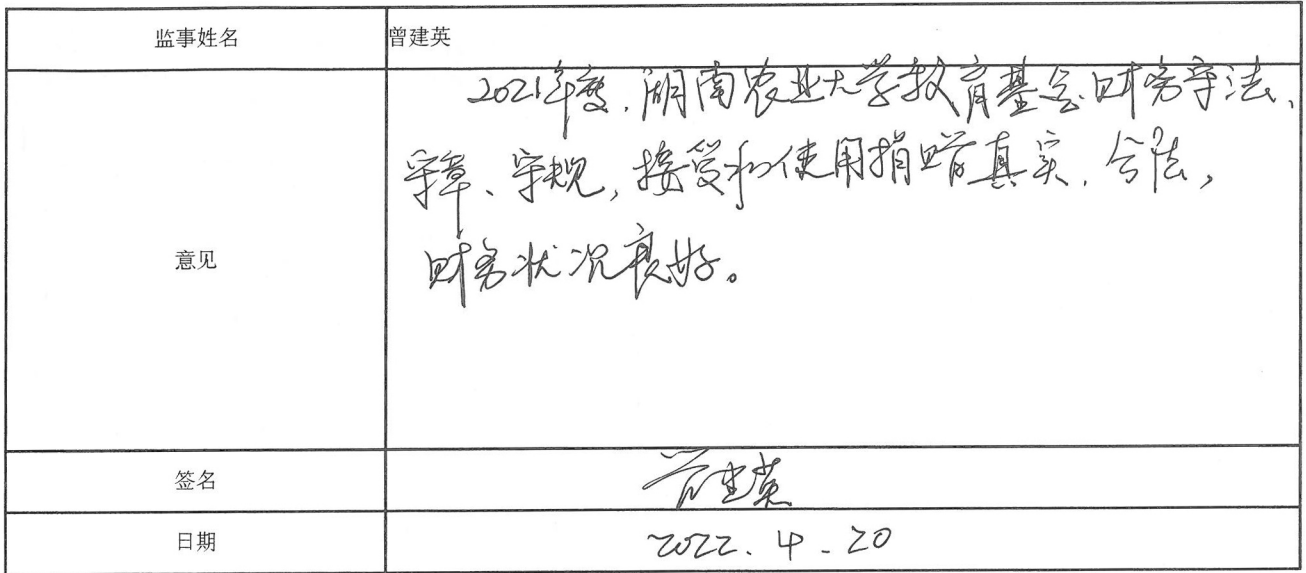 监事姓名 曾建英
2021年度,湖南农业大学教育基金会财务守法、
守章、守规,接受和使用捐赠真实、合法,
意见
财务状况良好。
签名 曾建英
日期 2022.4.20